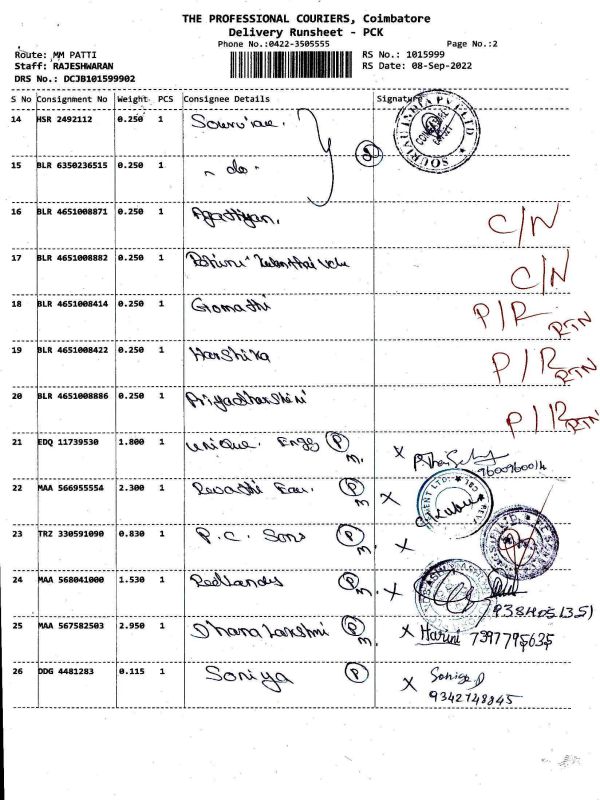 THE PROFESSIONAL COURIERS, Coimbatore
Delivery Runsheet - PCK
Phone No.:0422-3505555 Page No.:2
Route: MM PATTI RS No.: 1015999
Staff: RAJESHWARAN RS Date: 08-Sep-2022
DRS No.: DCJB101599902
S No Consignment No Weight PCS Consignee Details Signature
14 HSR 2492112 0.250 1
15 BLR 6350236515 0.250 1 - do -
16 BLR 4651008871 0.250 1 Agathiyan. C/N
17 BLR 4651008882 0.250 1 C/N
18 BLR 4651008414 0.250 1 Gomathi P/R RTN
19 BLR 4651008422 0.250 1 Harshika P/R RTN
20 BLR 4651008886 0.250 1 Priyadharshini P/R RTN
21 EDQ 11739530 1.800 1 Unique. Engg P M. X
22 MAA 566955554 2.300 1 Revathi Equ. P M X
23 TRZ 330591090 0.830 1 P.C. Sons P M. X
24 MAA 568041000 1.530 1 Redlands P M. X
25 MAA 567582503 2.950 1 Dhana Lakshmi P M. X Harini 7397795635
26 DDG 4481283 0.115 1 Soniya P X
9342748845